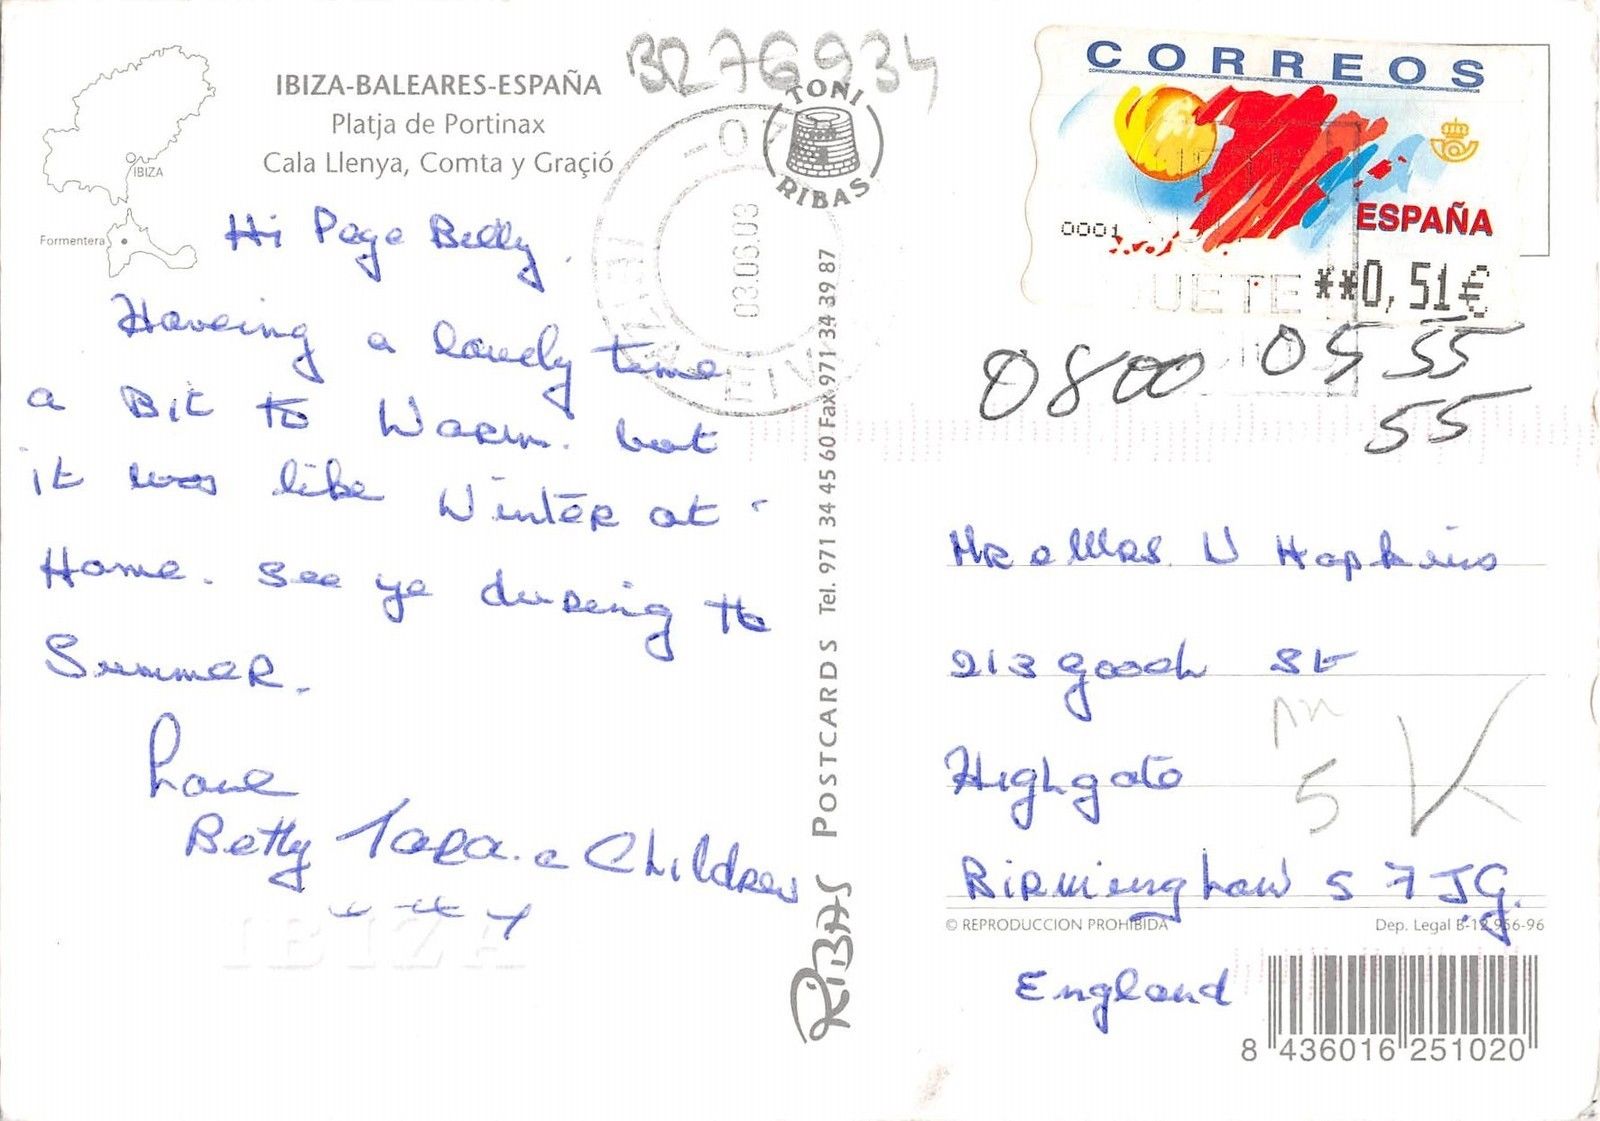 IBIZA-BALEARES-ESPAÑA
Platja de Portinax
Cala Llenya, Comta y Graçió
IBIZA
Formentera
BR76934
TONI
RIBAS
03.06.03
EIVISSA
CORREOS
ESPAÑA
0001
**0,51€
0800 05 55
55
Hi Page Betty.
Haveing a lovely time
a Bit to Warm. but
it was like Winter at
Home. See ye dureing the
Summer.
Love
Betty Tara. e Children
x x x
IBIZA
RIBAS POSTCARDS Tel. 971 34 45 60 Fax 971 34 39 87
Mr e Mrs. W Hopkins
213 Gooch St
Highgate
5
Birmingham 5 7 J.G.
England
© REPRODUCCION PROHIBIDA
Dep. Legal B-12.956-96
8 436016 251020